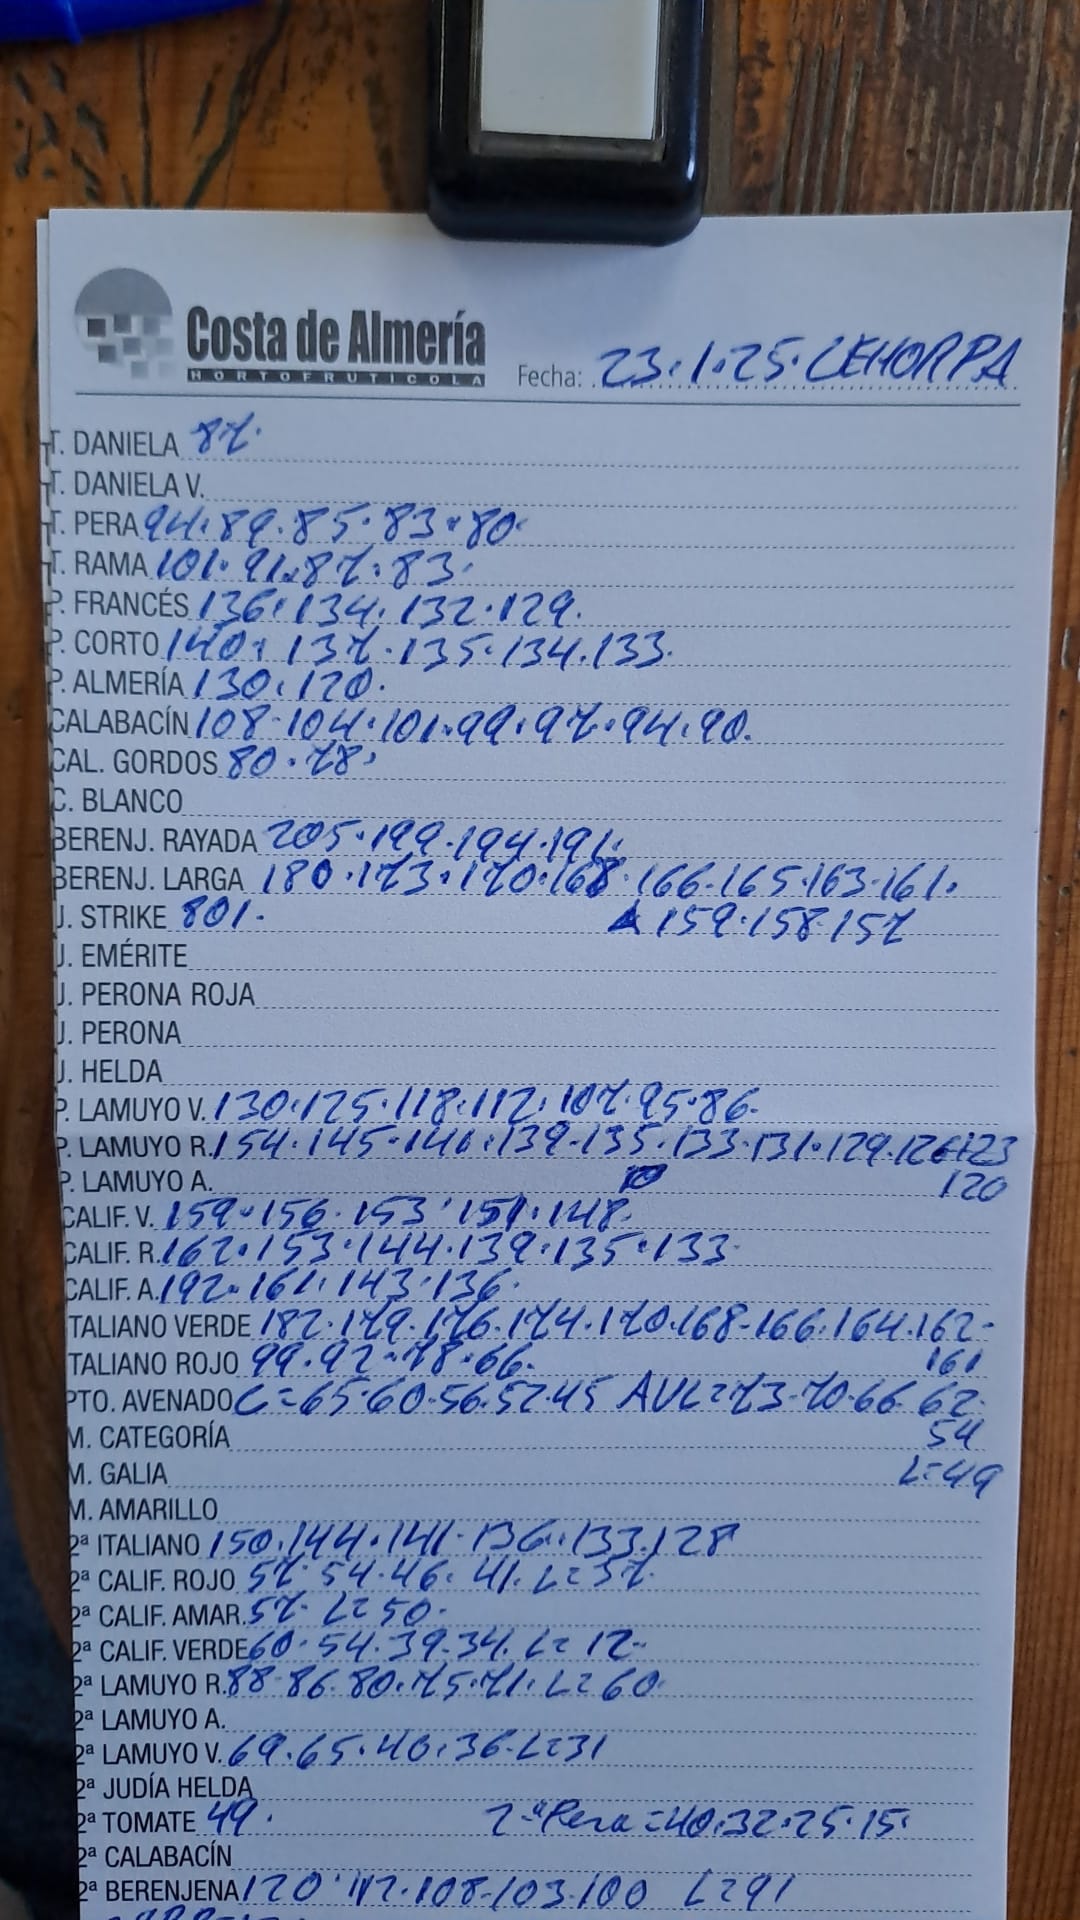 Costa de Almería
HORTOFRUTICOLA
Fecha: 23.1.25. CEHORPA
T. DANIELA 87.
T. DANIELA V.
T. PERA 94.89.85.83.80.
T. RAMA 101.91.87.83.
P. FRANCÉS 136.134.132.129.
P. CORTO 140.137.135.134.133.
P. ALMERÍA 130.120.
CALABACÍN 108-104.101.99.97.94.90.
CAL. GORDOS 80.78.
C. BLANCO
BERENJ. RAYADA 205.199.194.191.
BERENJ. LARGA 180.173.170.168.166-165.163-161.
J. STRIKE 801. 159.158.157
J. EMÉRITE
J. PERONA ROJA
J. PERONA
J. HELDA
P. LAMUYO V. 130.125.118.112.107.95.86.
P. LAMUYO R. 154.145.141.139-135.133.131.129.126.123
P. LAMUYO A. 120
CALIF. V. 159.156.153.151.148.
CALIF. R. 162.153.144.139.135.133.
CALIF. A. 192.161.143.136.
ITALIANO VERDE 182.179.176.174.170.168-166.164.162-
ITALIANO ROJO 99.92.78.66. 161
PTO. AVENADO C=65.60.56.52.45 AVL=73-70.66.62.
M. CATEGORÍA 54
M. GALIA L=49
M. AMARILLO
2ª ITALIANO 150.144.141.136.133.128
2ª CALIF. ROJO 57.54.46.41.L=37.
2ª CALIF. AMAR. 57. L=50.
2ª CALIF. VERDE 60.54.39.34. L=12-
2ª LAMUYO R. 88-86.80.75.71.L=60.
2ª LAMUYO A.
2ª LAMUYO V. 69.65.40.36-L=31
2ª JUDÍA HELDA
2ª TOMATE 49. 2-ª Pera=40.32.25.15.
2ª CALABACÍN
2ª BERENJENA 120.112.108-103.100 L=91